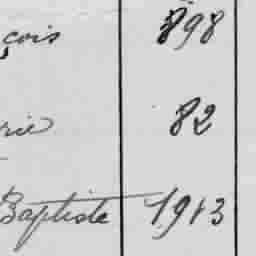 çois 898
rie 82
Baptiste 1913